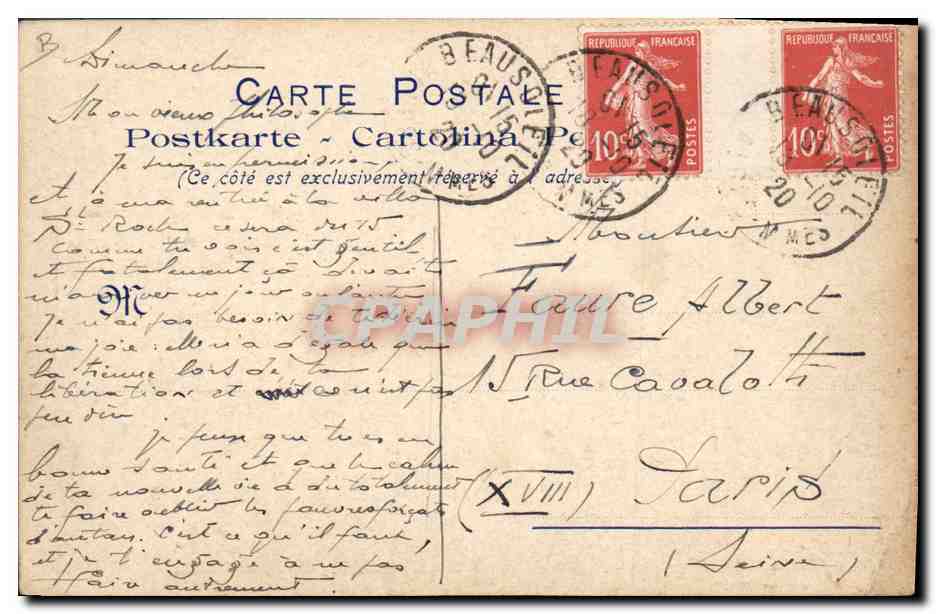 B
Dimanche
CARTE POSTALE
Postkarte - Cartolina Po
(Ce côté est exclusivement réservé à l'adresse
Mon vieux philosophe
Je suis en permission
et à ma rentrée à la villa
St Roch ce sera du 15
comme tu vois c'est gentil
et fatalement ça devait
m'arriver un jour
Je n'ai pas besoin de te
ma joie: elle n'a d'égale que
la tienne lors de ta
libération et ce n'est pas
peu dire
Je pense que tu es en
bonne santé et que le calme
de ta nouvelle vie a dû totalement
te faire oublier les pauvres forçats
d'antan. C'est ce qu'il faut,
et je t'engage à ne pas
faire autrement
M
BEAUSOLEIL
BEAUSOLEIL
BEAUSOLEIL
REPUBLIQUE FRANÇAISE
10c
POSTES
REPUBLIQUE FRANÇAISE
10c
POSTES
Monsieur
Faure Albert
15 Rue Cavalotti
(XVIII) Paris
(Seine)
CPAPHIL